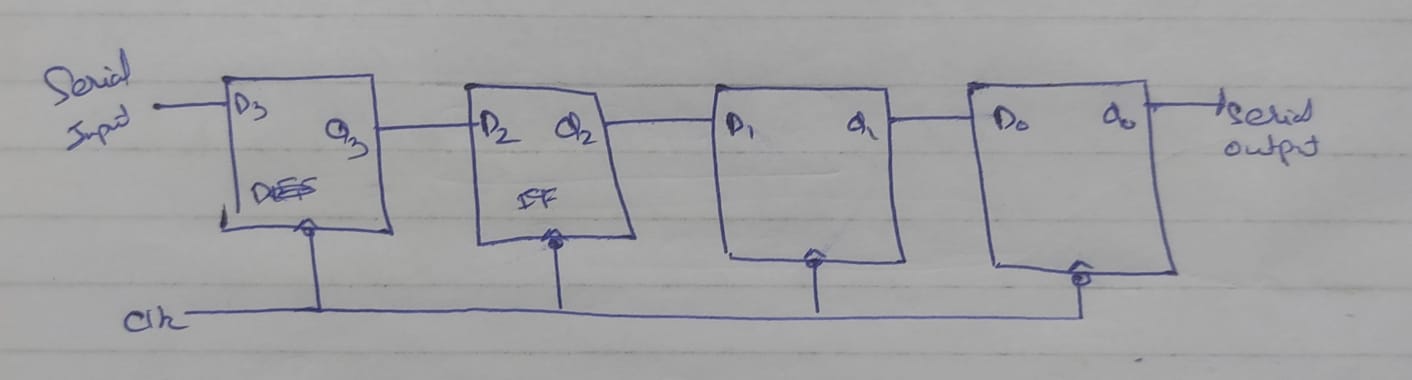 Serial
Input
D3
Q3
D2
Q2
D1
Q1
D0
Q0
Serial
output
Clk